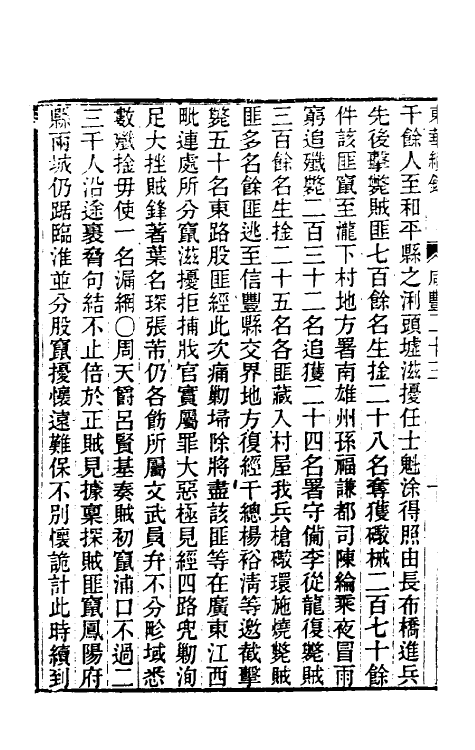 東華續錄 咸豐二十三
千餘人至和平縣之浰頭墟滋擾任士魁涂得照由長布橋進兵
先後擊斃賊匪七百餘名生擒二十八名奪獲礮械二百七十餘
件該匪竄至瀧下村地方署南雄州孫福謙都司陳綸乘夜冒雨
窮追殲斃二百三十二名追獲二十四名署守備李從龍復斃賊
三百餘名生擒二十五名各匪藏入村屋我兵槍礮環施燒斃賊
匪多名餘匪逃至信豐縣交界地方復經千總楊裕淸等邀截擊
斃五十名東路股匪經此次痛勦埽除將盡該匪等在廣東江西
毗連處所分竄滋擾拒捕戕官實屬罪大惡極見經四路兜勦洵
足大挫賊鋒著葉名琛張芾仍各飭所屬文武員弁不分畛域悉
數殲擒毋使一名漏網〇周天爵呂賢基奏賊初竄浦口不過二
三千人沿途裹脅句結不止倍於正賊見據稟探賊匪竄鳳陽府
縣兩城仍踞臨淮並分股竄擾懷遠難保不別懷詭計此時續到